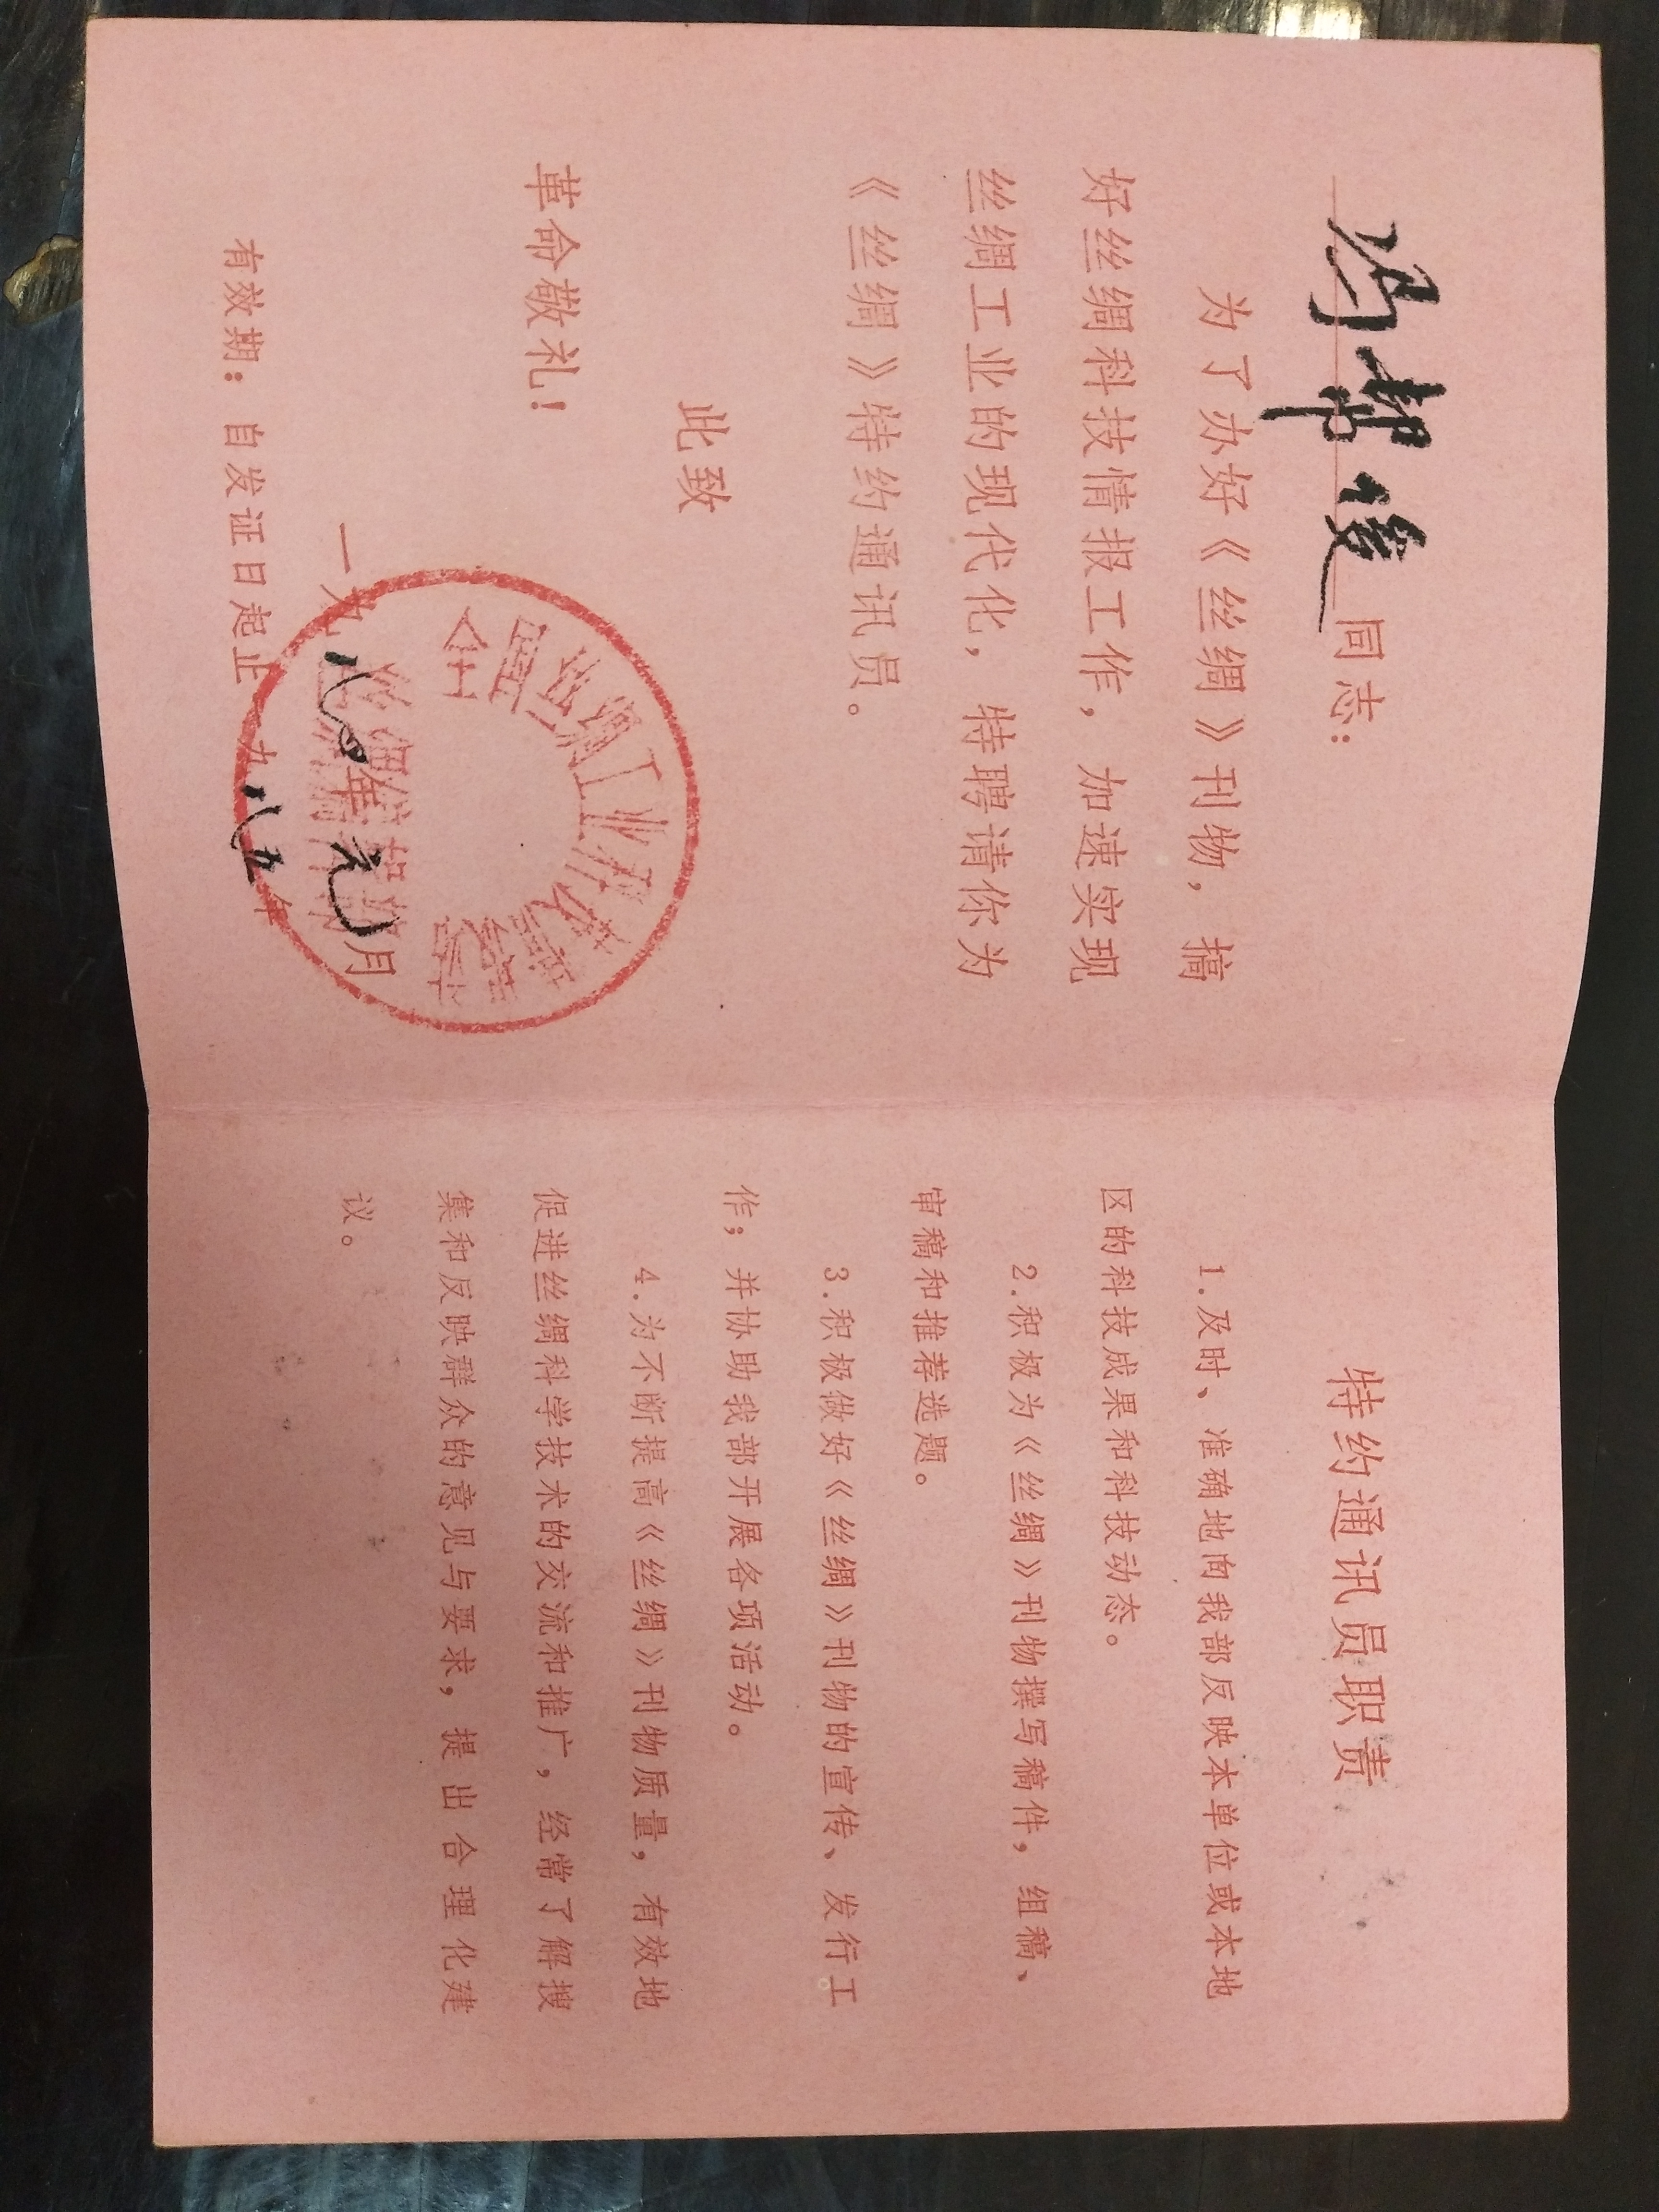 同志：
为了办好《丝绸》刊物，搞
好丝绸科技情报工作，加速实现
丝绸工业的现代化，特聘请你为
《丝绸》特约通讯员。
此致
革命敬礼！
一九八四年元月
有效期：自发证日起止九八五年
特约通讯员职责
1.及时、准确地向我部反映本单位或本地
区的科技成果和科技动态。
2.积极为《丝绸》刊物撰写稿件，组稿、
审稿和推荐选题。
3.积极做好《丝绸》刊物的宣传、发行工
作；并协助我部开展各项活动。
4.为不断提高《丝绸》刊物质量，有效地
促进丝绸科学技术的交流和推广，经常了解搜
集和反映群众的意见与要求，提出合理化建
议。